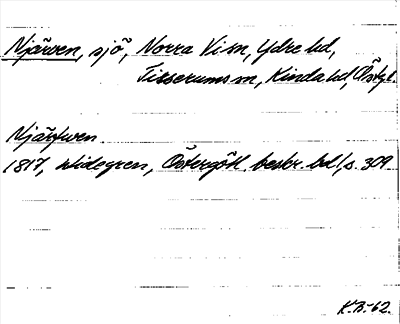 Njärven, sjö, Norra Vi sn, Ydre hd,
Tidersrums sn, Kinda hd, Östgl.
Njärfwen
1817, Widegren, Östergötl. beskr. bd 1, s. 309
K.B.-62.